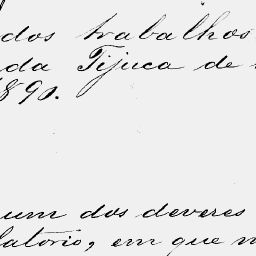 dos trabalhos
da Tijuca de
1890.
um dos deveres
latorio, em que